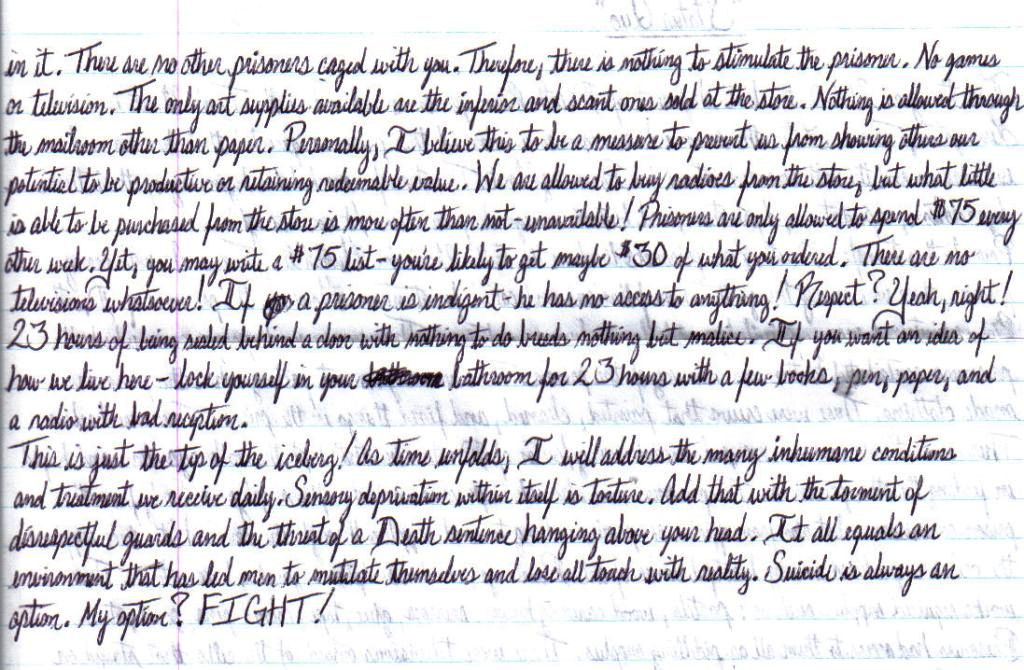 in it. There are no other prisoners caged with you. Therefore, there is nothing to stimulate the prisoner. No games
or television. The only art supplies available are the inferior and scant ones sold at the store. Nothing is allowed through
the mailroom other than paper. Personally, I believe this to be a measure to prevent us from showing others our
potential to be productive or retaining redeemable value. We are allowed to buy radios from the store, but what little
is able to be purchased from the store is more often than not-unavailable! Prisoners are only allowed to spend $75 every
other week. Yet, you may write a $75 list-you're likely to get maybe $30 of what you ordered. There are no
televisions whatsoever! If a prisoner is indigent-he has no access to anything! Respect? Yeah, right!
23 hours of being sealed behind a door with nothing to do breeds nothing but malice. If you want an idea of
how we live here - lock yourself in your bathroom for 23 hours with a few books, pen, paper, and
a radio with bad reception.
This is just the tip of the iceberg! As time unfolds, I will address the many inhumane conditions
and treatment we receive daily. Sensory deprivation within itself is torture. Add that with the torment of
disrespectful guards and the threat of a Death sentence hanging above your head. It all equals an
environment that has led men to mutilate themselves and lose all touch with reality. Suicide is always an
option. My option? FIGHT!